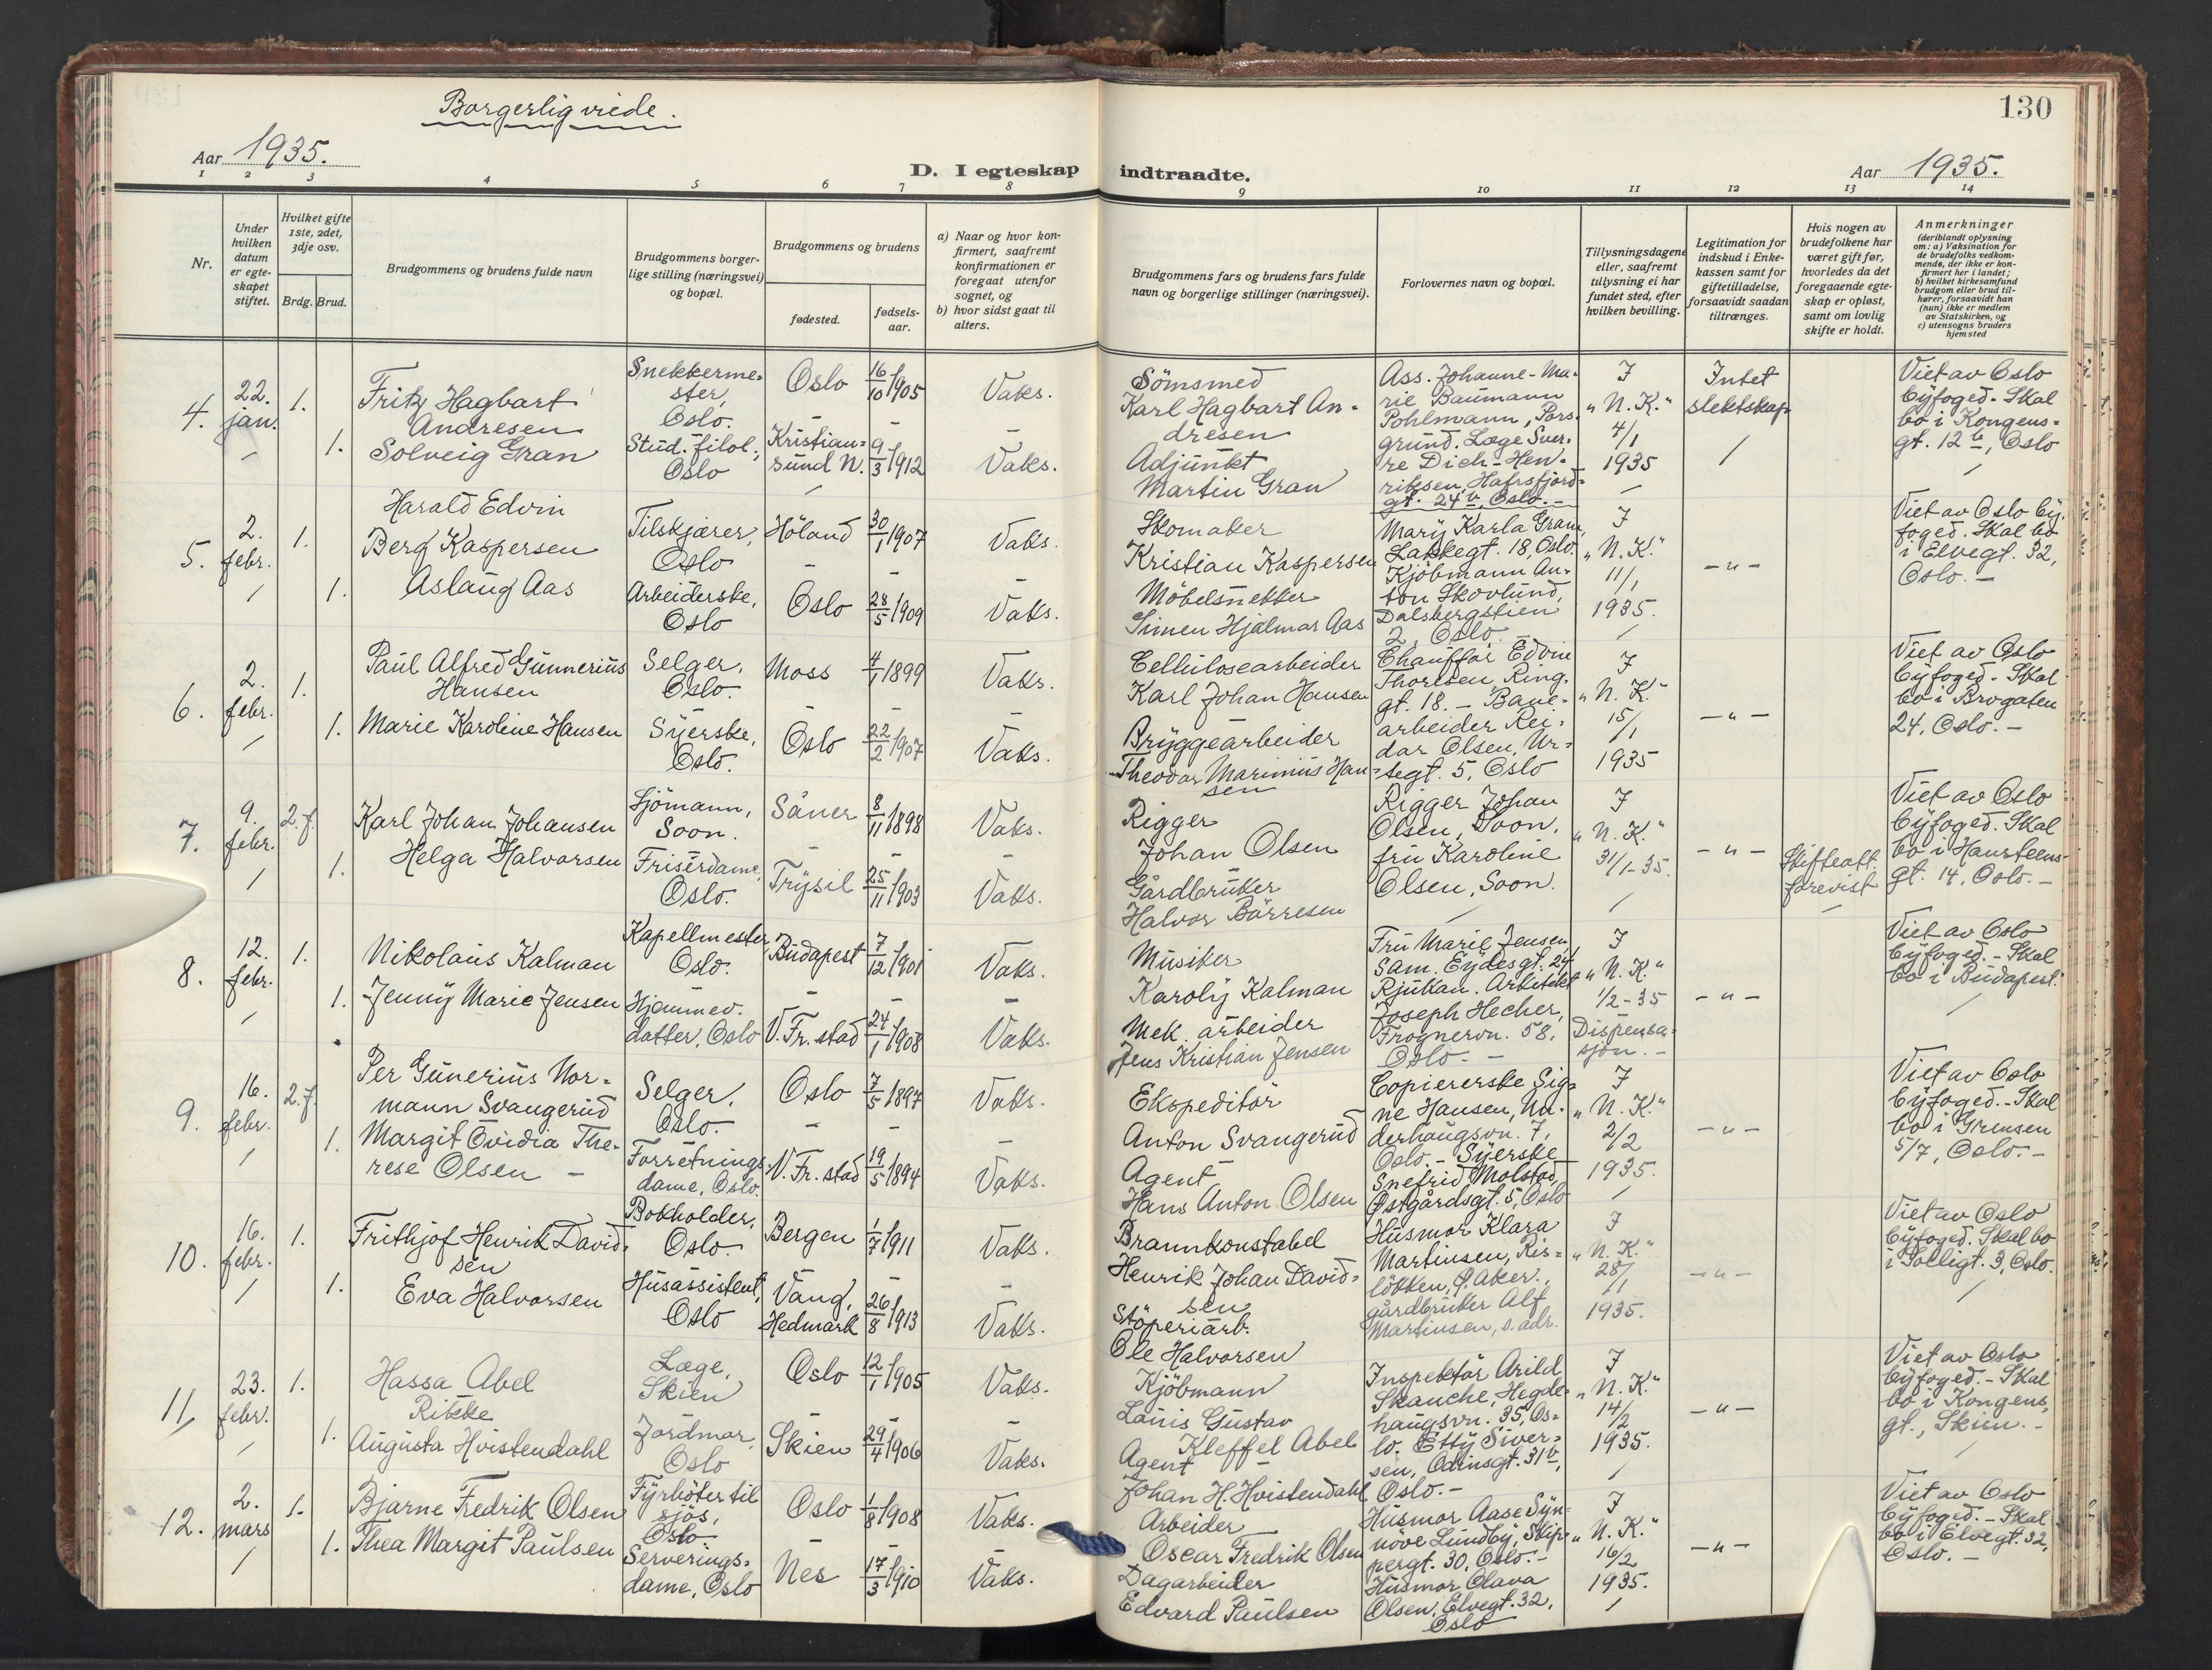 Borgerlig viede.
130
Aar 1935.
Aar 1935.
D. I egteskap indtraadte.
1 2 3 4 5 6 7 8 9 10 11 12 13 14
Nr.
Under hvilken datum er egte-skapet stiftet.
Hvilket gifte 1ste, 2det, 3dje osv.
Brdg. Brud.
Brudgommens og brudens fulde navn
Brudgommens borger-
lige stilling (næringsvei)
og bopæl.
Brudgommens og brudens
fødested.
fødsels-
aar.
a) Naar og hvor kon-
firmert, saafremt
konfirmationen er
foregaat utenfor
sognet, og
b) hvor sidst gaat til
alters.
Brudgommens fars og brudens fars fulde
navn og borgerlige stillinger (næringsvei).
Forlovernes navn og bopæl.
Tillysningsdagene
eller, saafremt
tillysning ei har
fundet sted, efter
hvilken bevilling.
Legitimation for
indskud i Enke-
kassen samt for
giftetilladelse,
forsaavidt saadan
tiltrænges.
Hvis nogen av
brudefolkene har
været gift før,
hvorledes da det
foregaaende egte-
skap er opløst,
samt om lovlig
skifte er holdt.
Anmerkninger
(deriblandt oplysning
om: a) Vaksination for
de brudefolks vedkom-
mende, der ikke er kon-
firmert her i landet;
b) hvilket kirkesamfund
brudgom eller brud til-
hører, forsaavidt han
(hun) ikke er medlem
av Statskirken, og
c) utensogns bruders
hjemsted
4.
22.
jan.
1.
1.
Fritz Hagbart
Andresen
Solveig Gran
Snekkerme-
ster,
Oslo.
Stud. filol.,
Oslo
Oslo
Kristian-
sund N.
16/10 1905
9/3 1912
Vaks.
Vaks.
Sömsmed
Karl Hagbart An-
dresen
Adjunkt
Martin Gran
Ass. Johanne-Ma-
rie Baumann
Pohlmann, Pors-
grund. Læge Sver-
re Dich-Hen-
riksen, Hafrsfjord-
gt. 24b, Oslo.-
I
"N.K."
4/1
1935
Intet
slektskap
Viet av Oslo
byfoged. Skal
bo i Kongens-
gt. 12b, Oslo
5.
2.
febr.
1.
1.
Harald Edvin
Berg Kaspersen
Aslaug Aas
Tilskjærer,
Oslo
Arbeiderske,
Oslo
Höland
Oslo
30/1 1907
28/5 1909
Vaks.
Vaks.
Skomaker
Kristian Kaspersen
Möbelsnekker
Simen Hjalmar Aas
Mary Karla Gran,
Lakkegt. 18, Oslo.
Kjöbmann An-
ton Skovlund,
Dalsbergstien
2, Oslo.
I
"N.K."
11/1
1935.
-"-
Viet av Oslo by-
foged. Skal bo
i Elvegt. 32,
Oslo.-
6.
2.
febr.
1.
1.
Paul Alfred Gunnerius
Hansen
Marie Karoline Hansen
Selger,
Oslo.
Syerske,
Oslo.
Moss
Oslo
4/1 1899
22/2 1907
Vaks.
Vaks.
Cellulosearbeider
Karl Johan Hansen
Bryggearbeider
Theodor Marinius Han-
sen
Chaufför Edvin
Thorlsen, Ring-
gt. 18.- Bane-
arbeider Rei-
dar Olsen, Ur-
tegt. 5, Oslo
I
"N.K."
15/1
1935
-"-
Viet av Oslo
byfoged. Skal
bo i Brogaten
24, Oslo.-
7.
9.
febr.
2.f.
1.
Karl Johan Johansen
Helga Halvorsen
Sjömann,
Soon.
Frisérdame,
Oslo.
Såner
Trysil
8/11 1898
25/11 1903
Vaks.
Vaks.
Rigger
Johan Olsen
Gårdbruker
Halvor Börresen
Rigger Johan
Olsen, Soon,
fru Karoline
Olsen, Soon.
I
"N.K."
31/1-35.
-"-
Skifteatt.
forevist
Viet av Oslo
byfoged. Skal
bo i Hansteens-
gt. 14, Oslo.-
8.
12.
febr.
1.
1.
Nikolaus Kalman
Jenny Marie Jensen
Kapellmester,
Oslo.
Hjemmev.
datter, Oslo
Budapest
V. Fr.stad
7/12 1901
24/1 1908
Vaks.
Vaks.
Musiker
Karoly Kalman
Mek. arbeider
Jens Kristian Jensen
Fru Marie Jensen,
Sam. Eydesgt. 24,
Rjukan. Arkitekt
Joseph Hecher,
Frognervn. 58,
Oslo.-
I
"N.K."
1/2-35
Dispensa-
sjon.-
-"-
Viet av Oslo
byfoged.- Skal
bo i Budapest.
9.
16.
febr.
2.f.
1.
Per Gunerius Nor-
mann Svangerud
Margit Ovidia The-
rese Olsen -
Selger,
Oslo.
Forretnings-
dame, Oslo.
Oslo
V. Fr. stad
7/5 1897
19/5 1894
Vaks.
Vaks.
Ekspeditör
Anton Svangerud
Agent
Hans Anton Olsen
Copiererske Sig-
ne Hansen, Un-
derhaugsvn. 7,
Oslo.- Syerske
Snefrid Molstad,
Østgårdsgt. 5, Oslo
I
"N.K."
2/2
1935.
-"-
Viet av Oslo
byfoged.- Skal
bo i Grensen
5/7, Oslo.-
10.
16.
febr.
1.
1.
Frithjof Henrik David-
sen
Eva Halvorsen
Bokholder,
Oslo.
Husassistent,
Oslo
Bergen
Vang,
Hedmark
1/7 1911
26/8 1913
Vaks.
Vaks.
Brannkonstabel
Henrik Johan David-
sen
Støperiarb.
Ole Halvorsen
Husmor Klara
Martinsen, Ris-
lökken, Ø. Aker.,
gårdbruker Alf
Martinsen, s. adr.
I
"N.K."
28/1
1935.
-"-
Viet av Oslo
byfoged. Skal bo
i Solligt. 3, Oslo.
11
23.
febr.
1.
1.
Hassa Abel
Rikke
Augusta Hvistendahl
Læge,
Skien
Jordmor,
Oslo
Oslo
Skien
12/1 1905
29/4 1906
Vaks.
Vaks.
Kjöbmann
Louis Gustav
Kleffel Abel
Agent
Johan H. Hvistendahl
Inspektör Arild
Skauche, Hegde-
haugsvn. 35, Os-
lo. Etty Siver-
sen, Odinsgt. 31b,
Oslo.-
I
"N.K."
14/2
1935.
-"-
Viet av Oslo
byfoged.- Skal
bo i Kongens-
gt., Skien.-
12.
2.
mars
1.
1.
Bjarne Fredrik Olsen
Thea Margit Paulsen
Fyrböter til
sjös,
Oslo
Serverings-
dame, Oslo
Oslo
Nes
1/8 1908
17/3 1910
Vaks.
Vaks.
Arbeider
Oscar Fredrik Olsen
Dagarbeider
Edvard Paulsen
Husmor Aase Syn-
növe Lundby, Skip-
pergt. 30, Oslo.-
Husmor Olava
Olsen, Elvegt. 32,
Oslo
I
"N.K."
16/2
1935.
-"-
Viet av Oslo
byfoged.- Skal
bo i Elvegt. 32,
Oslo.-